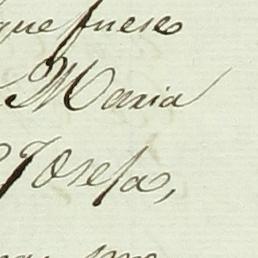 que fuese
Maria
Josefa,